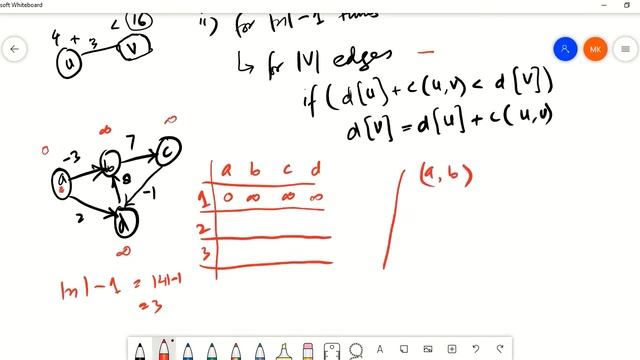 soft Whiteboard
4 + 3 < 16
u v
ii) for |n|-1 times
↳ for |V| edges
if (d[u]+c(u,v) < d[v])
d[v] = d[u]+c(u,v)
MK
0 ∞ ∞
-3 7
a b c
8 -1
2 d
∞
|n|-1 = |4|-1
= 3
a b c d
1 0 ∞ ∞ ∞
2
3
(a, b)